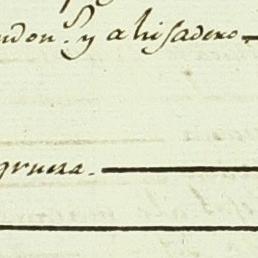 ndon. y alisadero
grueza.